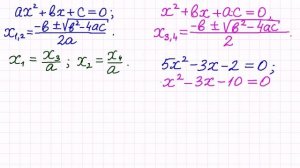 ax² + bx + c = 0;
x₁,₂ = (-b ± √(b² - 4ac)) / 2a .
x₁ = x₃/a ; x₂ = x₄/a .
x² + bx + ac = 0,
x₃,₄ = (-b ± √(b² - 4ac)) / 2 .
5x² - 3x - 2 = 0;
x² - 3x - 10 = 0